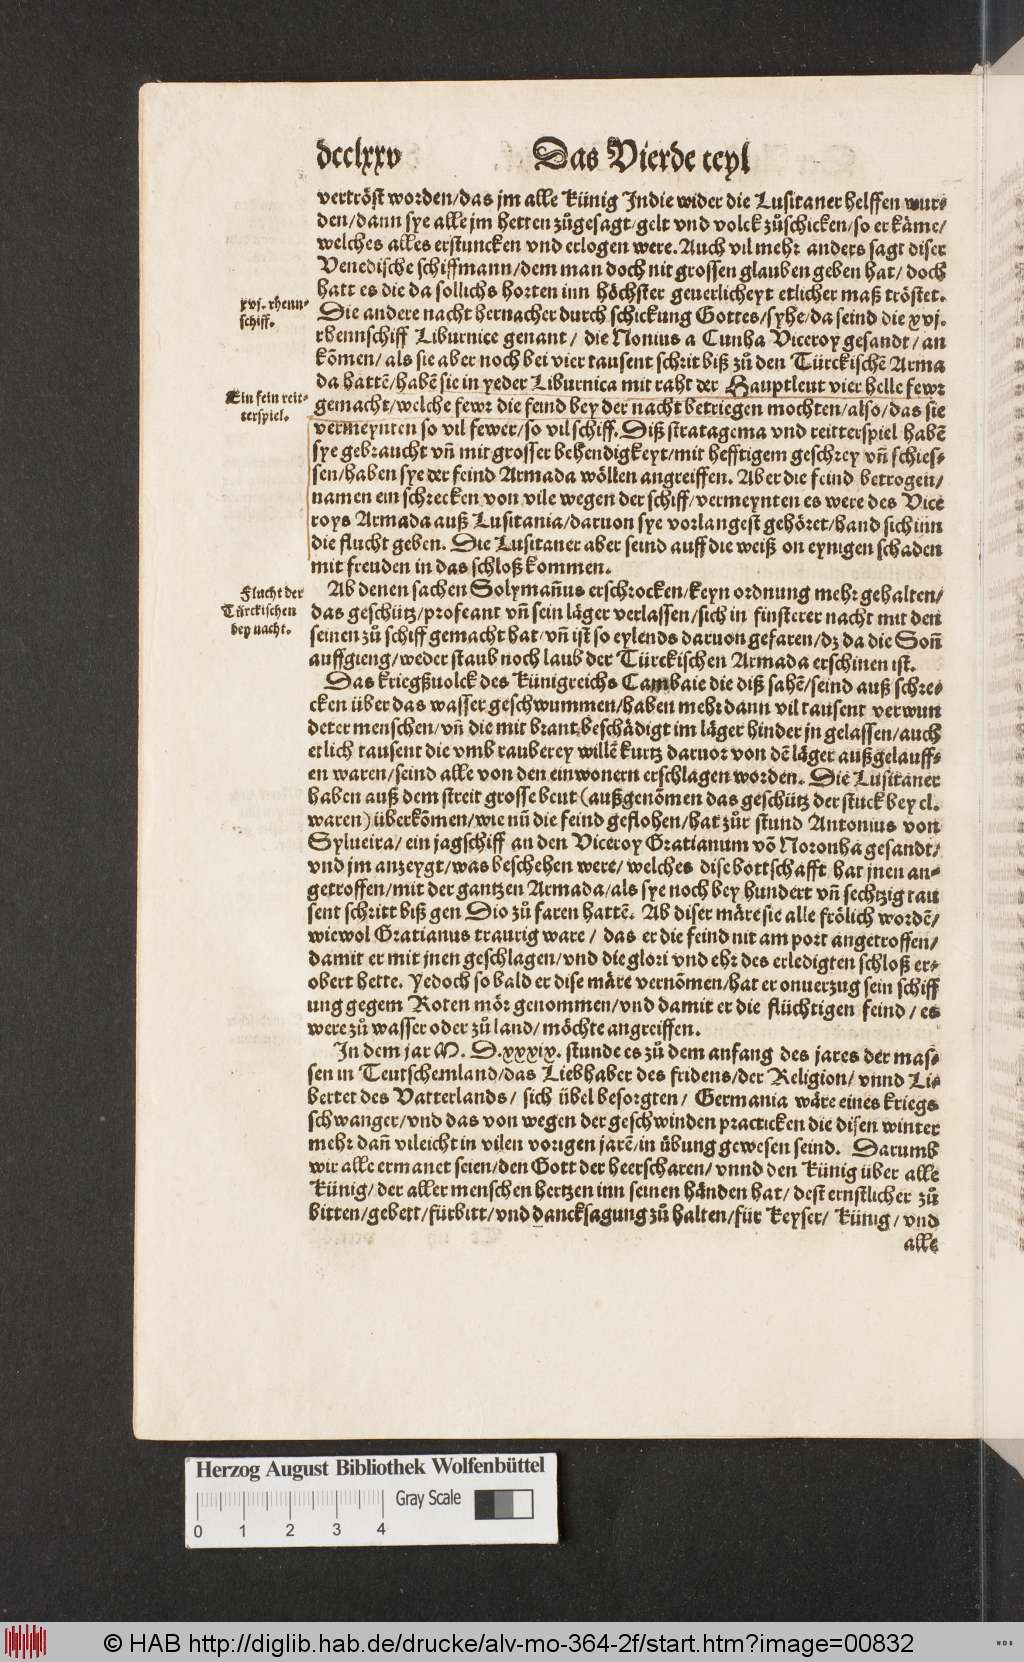 dcclxxv Das Vierde teyl
vertröst worden/das jm alle Künig Indie wider die Lusitaner helffen wur⸗
den/dann sye alle jm hetten zůgesagt/gelt vnd volck zůschicken/so er käme/
welches alles erstuncken vnd erlogen were. Auch vil mehr anders sagt diser
Venedische schiffmann/dem man doch nit grossen glauben geben hat/ doch
hatt es die da sollichs horten inn höchster geuerlicheyt etlicher maß tröstet.
xvj. rhenn⸗
schiff.
Die andere nacht hernacher durch schickung Gottes/syhe/da seind die xvj.
rhennschiff Liburnice genant/ die Nonius a Cunha Viceroy gesandt/ an
kōmen/ als sie aber noch bei vier tausent schrit biß zů den Türckischē Arma
da hattē/habē sie in yeder Liburnica mit raht der Hauptleut vier helle fewr
Ein fein reit⸗
terspiel.
gemacht/welche fewr die feind bey der nacht betriegen mochten/also/das sie
vermeynten so vil fewer/so vil schiff. Diß stratagema vnd reitterspiel habē
sye gebraucht vn̄ mit grosser behendigkeyt/mit hefftigem geschrey vn̄ schies⸗
sen/haben sye der feind Armada wöllen angreiffen. Aber die feind betrogen/
namen ein schrecken von vile wegen der schiff/vermeynten es were des Vice
roys Armada auß Lusitania/daruon sye vorlangest gehöret/hand sich inn
die flucht geben. Die Lusitaner aber seind auff die weiß on eynigen schaden
mit freuden in das schloß kommen.
Flucht der
Türckischen
bey nacht.
Ab denen sachen Solyman̄us erschrocken/keyn ordnung mehr gehalten/
das geschütz/profeant vn̄ sein läger verlassen/sich in finsterer nacht mit den
seinen zů schiff gemacht hat/vn̄ ist so eylends daruon gefaren/dz da die Son̄
auffgieng/weder staub noch laub der Türckischen Armada erschinen ist.
Das kriegßuolck des Künigreichs Cambaie die diß sahē/seind auß schre⸗
cken über das wasser geschwummen/haben mehr dann vil tausent verwun
deter menschen/vn̄ die mit brant beschädigt im läger hinder jn gelassen/auch
etlich tausent die vmb rauberey willē kurtz daruor von dē läger außgelauff⸗
en waren/seind alle von den einwonern erschlagen worden. Die Lusitaner
haben auß dem streit grosse beut (außgenōmen das geschütz der stuck bey cl.
waren) überkōmen/wie nun̄ die feind geflohen/hat zůr stund Antonius von
Sylueira/ ein jagschiff an den Viceroy Gratianum vō Noronha gesandt/
vnd jm anzeygt/was beschehen were/ welches dise bottschafft hat jnen an⸗
getroffen/mit der gantzen Armada/als sye noch bey hundert vn̄ sechtzig tau
sent schritt biß gen Dio zů faren hattē. Ab diser märe sie alle frölich wordē/
wiewol Gratianus traurig ware/ das er die feind nit am port angetroffen/
damit er mit jnen geschlagen/vnd die glori vnd ehr des erledigten schloß er⸗
obert hette. Yedoch so bald er dise märe vernōmen/hat er onuerzug sein schiff
ung gegem Roten mör genommen/vnd damit er die flüchtigen feind/ es
were zů wasser oder zů land/ möchte angreiffen.
In dem jar M. D.xxxix. stunde es zů dem anfang des jares der mas⸗
sen in Teutschemland/das Liebhaber des fridens/der Religion/ vnnd Li⸗
bertet des Vatterlands/ sich übel besorgten/ Germania wäre eines kriegs
schwanger/vnd das von wegen der geschwinden practicken die disen winter
mehr dan̄ vileicht in vilen vorigen jarē/in übung gewesen seind. Darumb
wir alle ermanet seien/den Gott der heerscharen/ vnnd den Künig über alle
Künig/ der aller menschen hertzen inn seinen händen hat/ dest ernstlicher zů
bitten/gebett/fürbitt/vnd dancksagung zů halten/für Keyser/ Künig/ vnd
alle
Herzog August Bibliothek Wolfenbüttel
0 1 2 3 4 Gray Scale
© HAB http://diglib.hab.de/drucke/alv-mo-364-2f/start.htm?image=00832